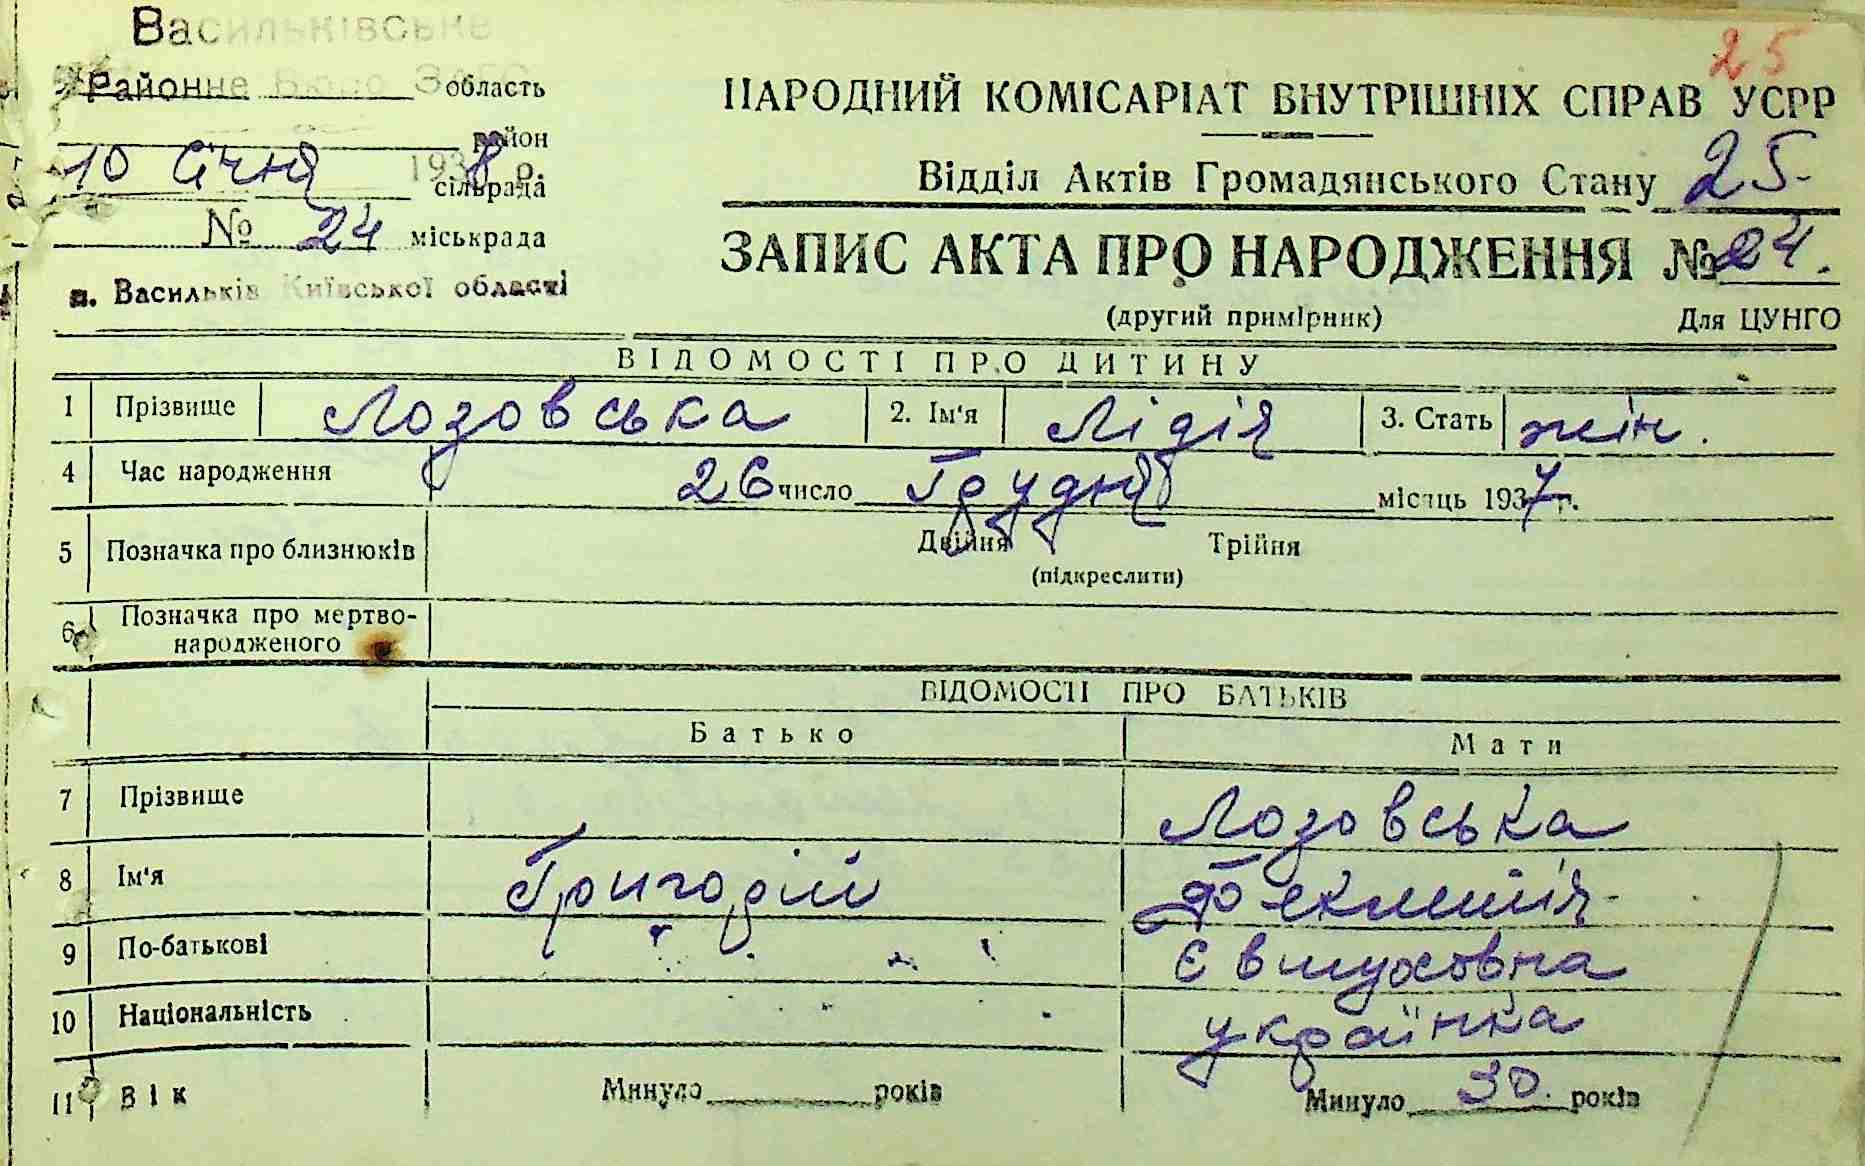 Васильківське
25
Районне Бюро ЗАГС область
НАРОДНИЙ КОМІСАРІАТ ВНУТРІШНІХ СПРАВ УСРР
район
10 Січня 1938 р.
сільрада
Відділ Актів Громадянського Стану 25.
№ 24 міськрада
ЗАПИС АКТА ПРО НАРОДЖЕННЯ № 24.
м. Васильків Київської області
(другий примірник) Для ЦУНГО
ВІДОМОСТІ ПРО ДИТИНУ
1 Прізвище Лозовська 2. Ім'я Лідія 3. Стать жін.
4 Час народження 26 число Грудня місяць 1937 г.
5 Позначка про близнюків Двійня Трійня
(підкреслити)
6 Позначка про мертво-
народженого
ВІДОМОСТІ ПРО БАТЬКІВ
Батько Мати
7 Прізвище Лозовська
8 Ім'я Григорій
9 По-батькові
10 Національність українка
11 Вік Минуло років Минуло 30. років